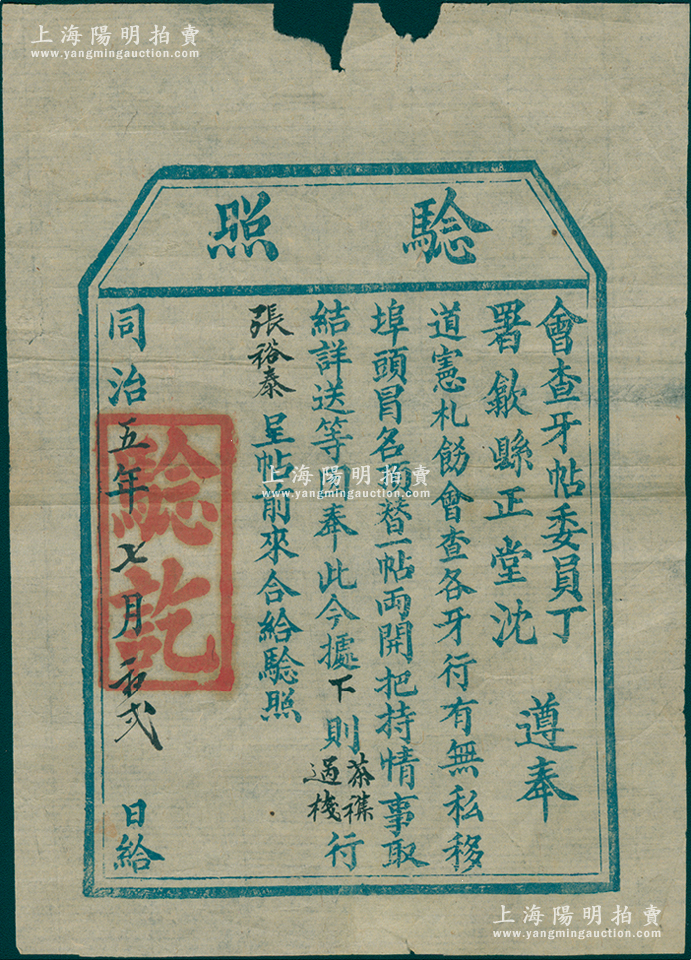 上海陽明拍賣
www.yangmingauction.com
驗照
會查牙帖委員丁
署歙縣正堂沈
遵奉
道憲札飭會查各牙行有無私移
埠頭冒名頂替一帖両開把持情事取
結詳送等因奉此今據下則茶穕過棧行
張裕泰呈帖前來合給驗照
同治五年七月初弍日給
驗訖
上海陽明拍賣
www.yangmingauction.com
上海陽明拍賣
www.yangmingauction.com